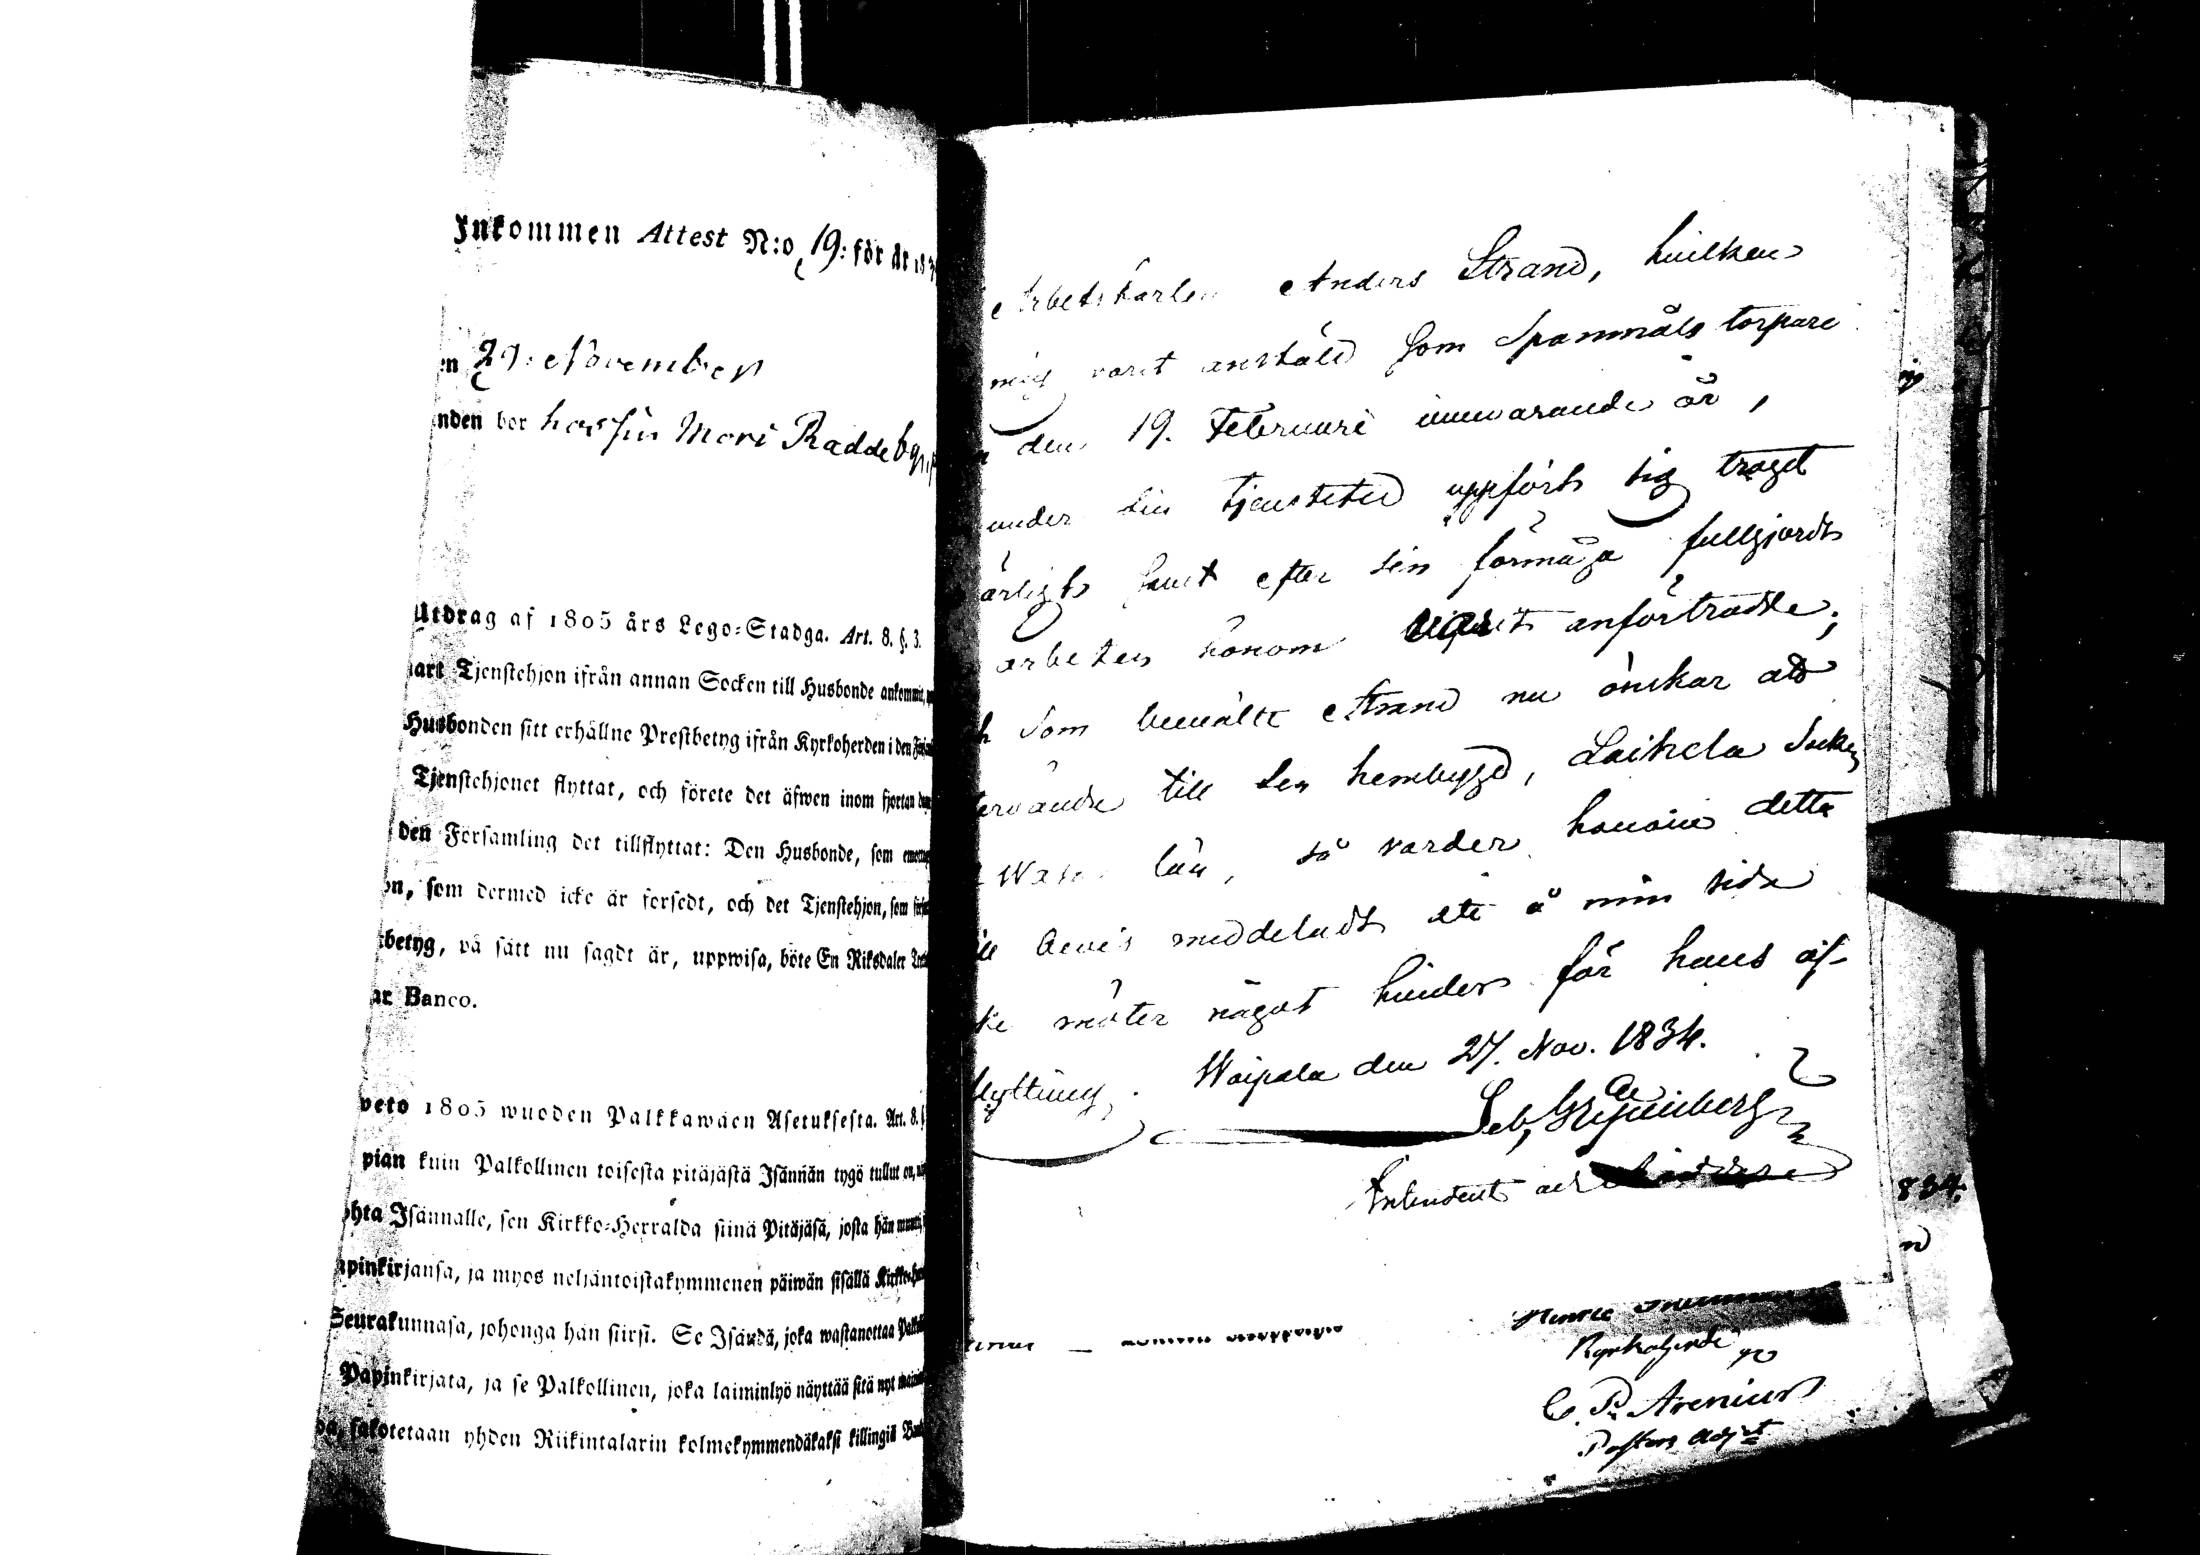 Inkommen Attest N:o 19: för år 183
en 29: November
nden bor hos sin Mori Raddeby
Utdrag af 1805 års Lego-Stadga. Art. 8. §. 3.
nart Tjenstehjon ifrån annan Socken till Husbonde ankommit,
Husbonden sitt erhållne Prestbetyg ifrån Kyrkoherden i den
Tjenstehjonet flyttat, och förete det äfwen inom fjortan
den Församling det tillflyttat: Den Husbonde, som
on, som dermed icke är försedt, och det Tjenstehjon, som
betyg, på sätt nu sagdt är, uppwisa, böte En Riksdaler
ar Banco.
veto 1805 wuoden Palkkawäen Asetuksesta. Art. 8.
pian kuin Palkollinen toisesta pitäjästä Isännän tygö tullut on,
ohta Isännalle, sen Kirkko-Herralda siinä Pitäjäsä, josta hän
apinkirjansa, ja myös neljäntoistakymmenen päiwän sisällä
Seurakunnasa, johonga hän siirsi. Se Isändä, joka wastanottaa
Papinkirjata, ja se Palkollinen, joka laiminlyö näyttää sitä nyt
da, sakotetaan yhden Riikintalarin kolmekymmendäkaksi killingiä
Arbetskarlen Anders Strand, hvilken
mig varit anstäld som Spanmåls torpare
den 19. Februari innevarande år,
under sin tjenstetid uppfört sig troget
ärligt samt efter sin förmåga fullgjordt
arbeten honom varit anförtrodde;
h som bemälte Strand nu önskar att
ervände till sin hembygd, Laihela Socken
Wasa län, så varder honom detta
ill bevis meddeladt att å min sida
ke möter något hinder för hans af-
flyttning. Woipala den 27. Nov. 1834.
Seb. Gripenberg
Intendent
834.
Kyrkoherde
C. R. Arenius
Pastors Adjct